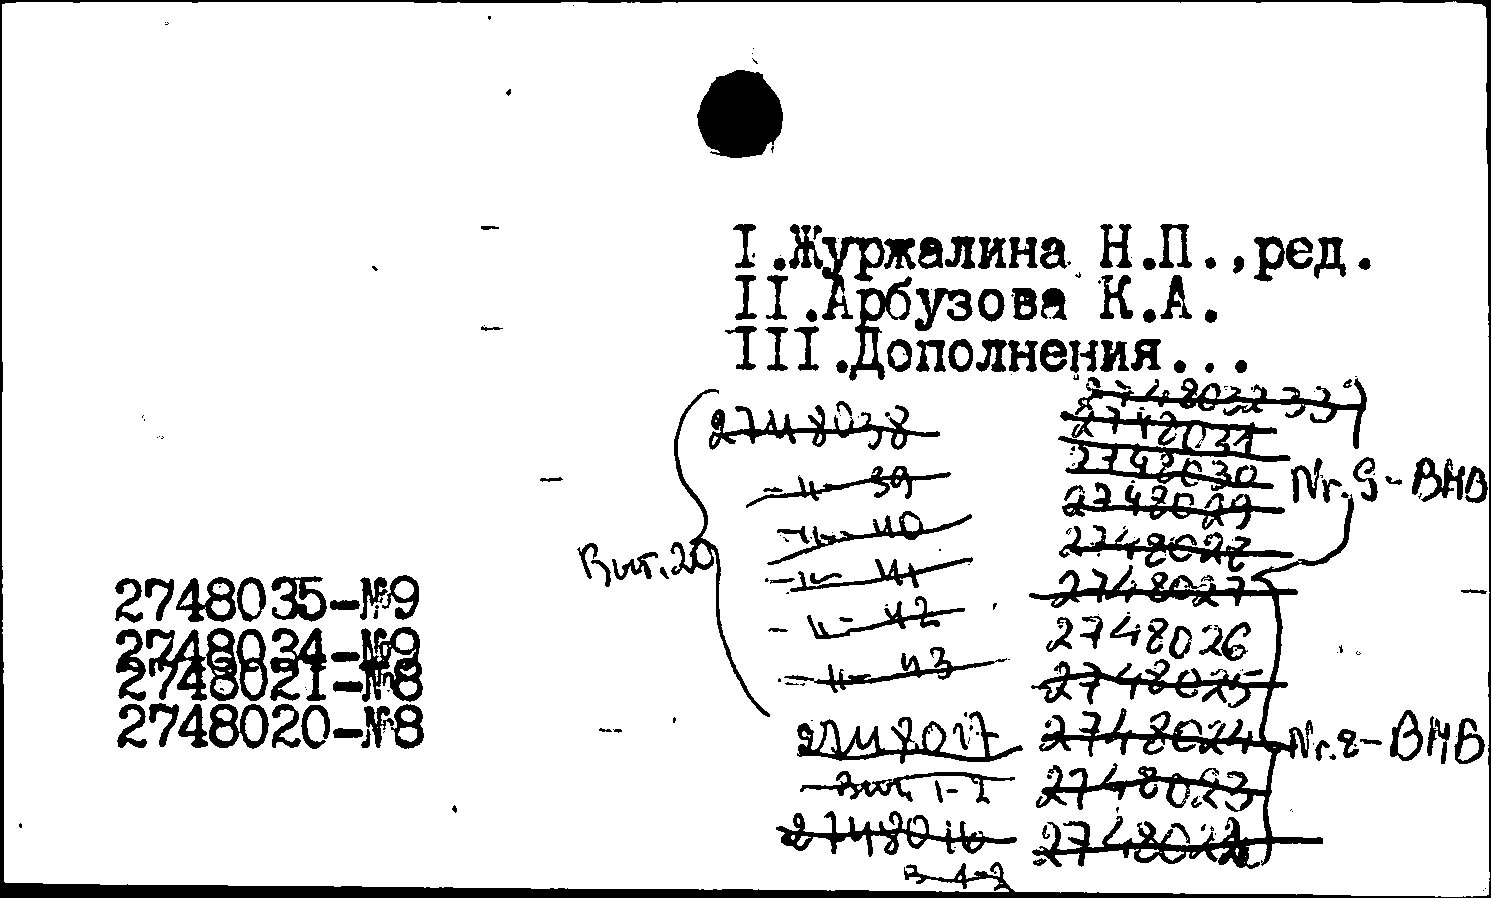 I.Журжалина Н.П.,ред.
II.Арбузова К.А.
III.Дополнения...
2748035-№9
2748034-№9
2748021-№8
2748020-№8
Вып.20
2748038
-"- 39
-"- 40
-"- 41
-"- 42
-"- 43
2748017
Вып. 1-2
2748016
В 1-2
2748032 33
2748031
2748030
2748029
2748028
Nr. 9-ВМВ
2748027
2748026
2748025
2748024
2748023
2748022
Nr. 8-ВМВ